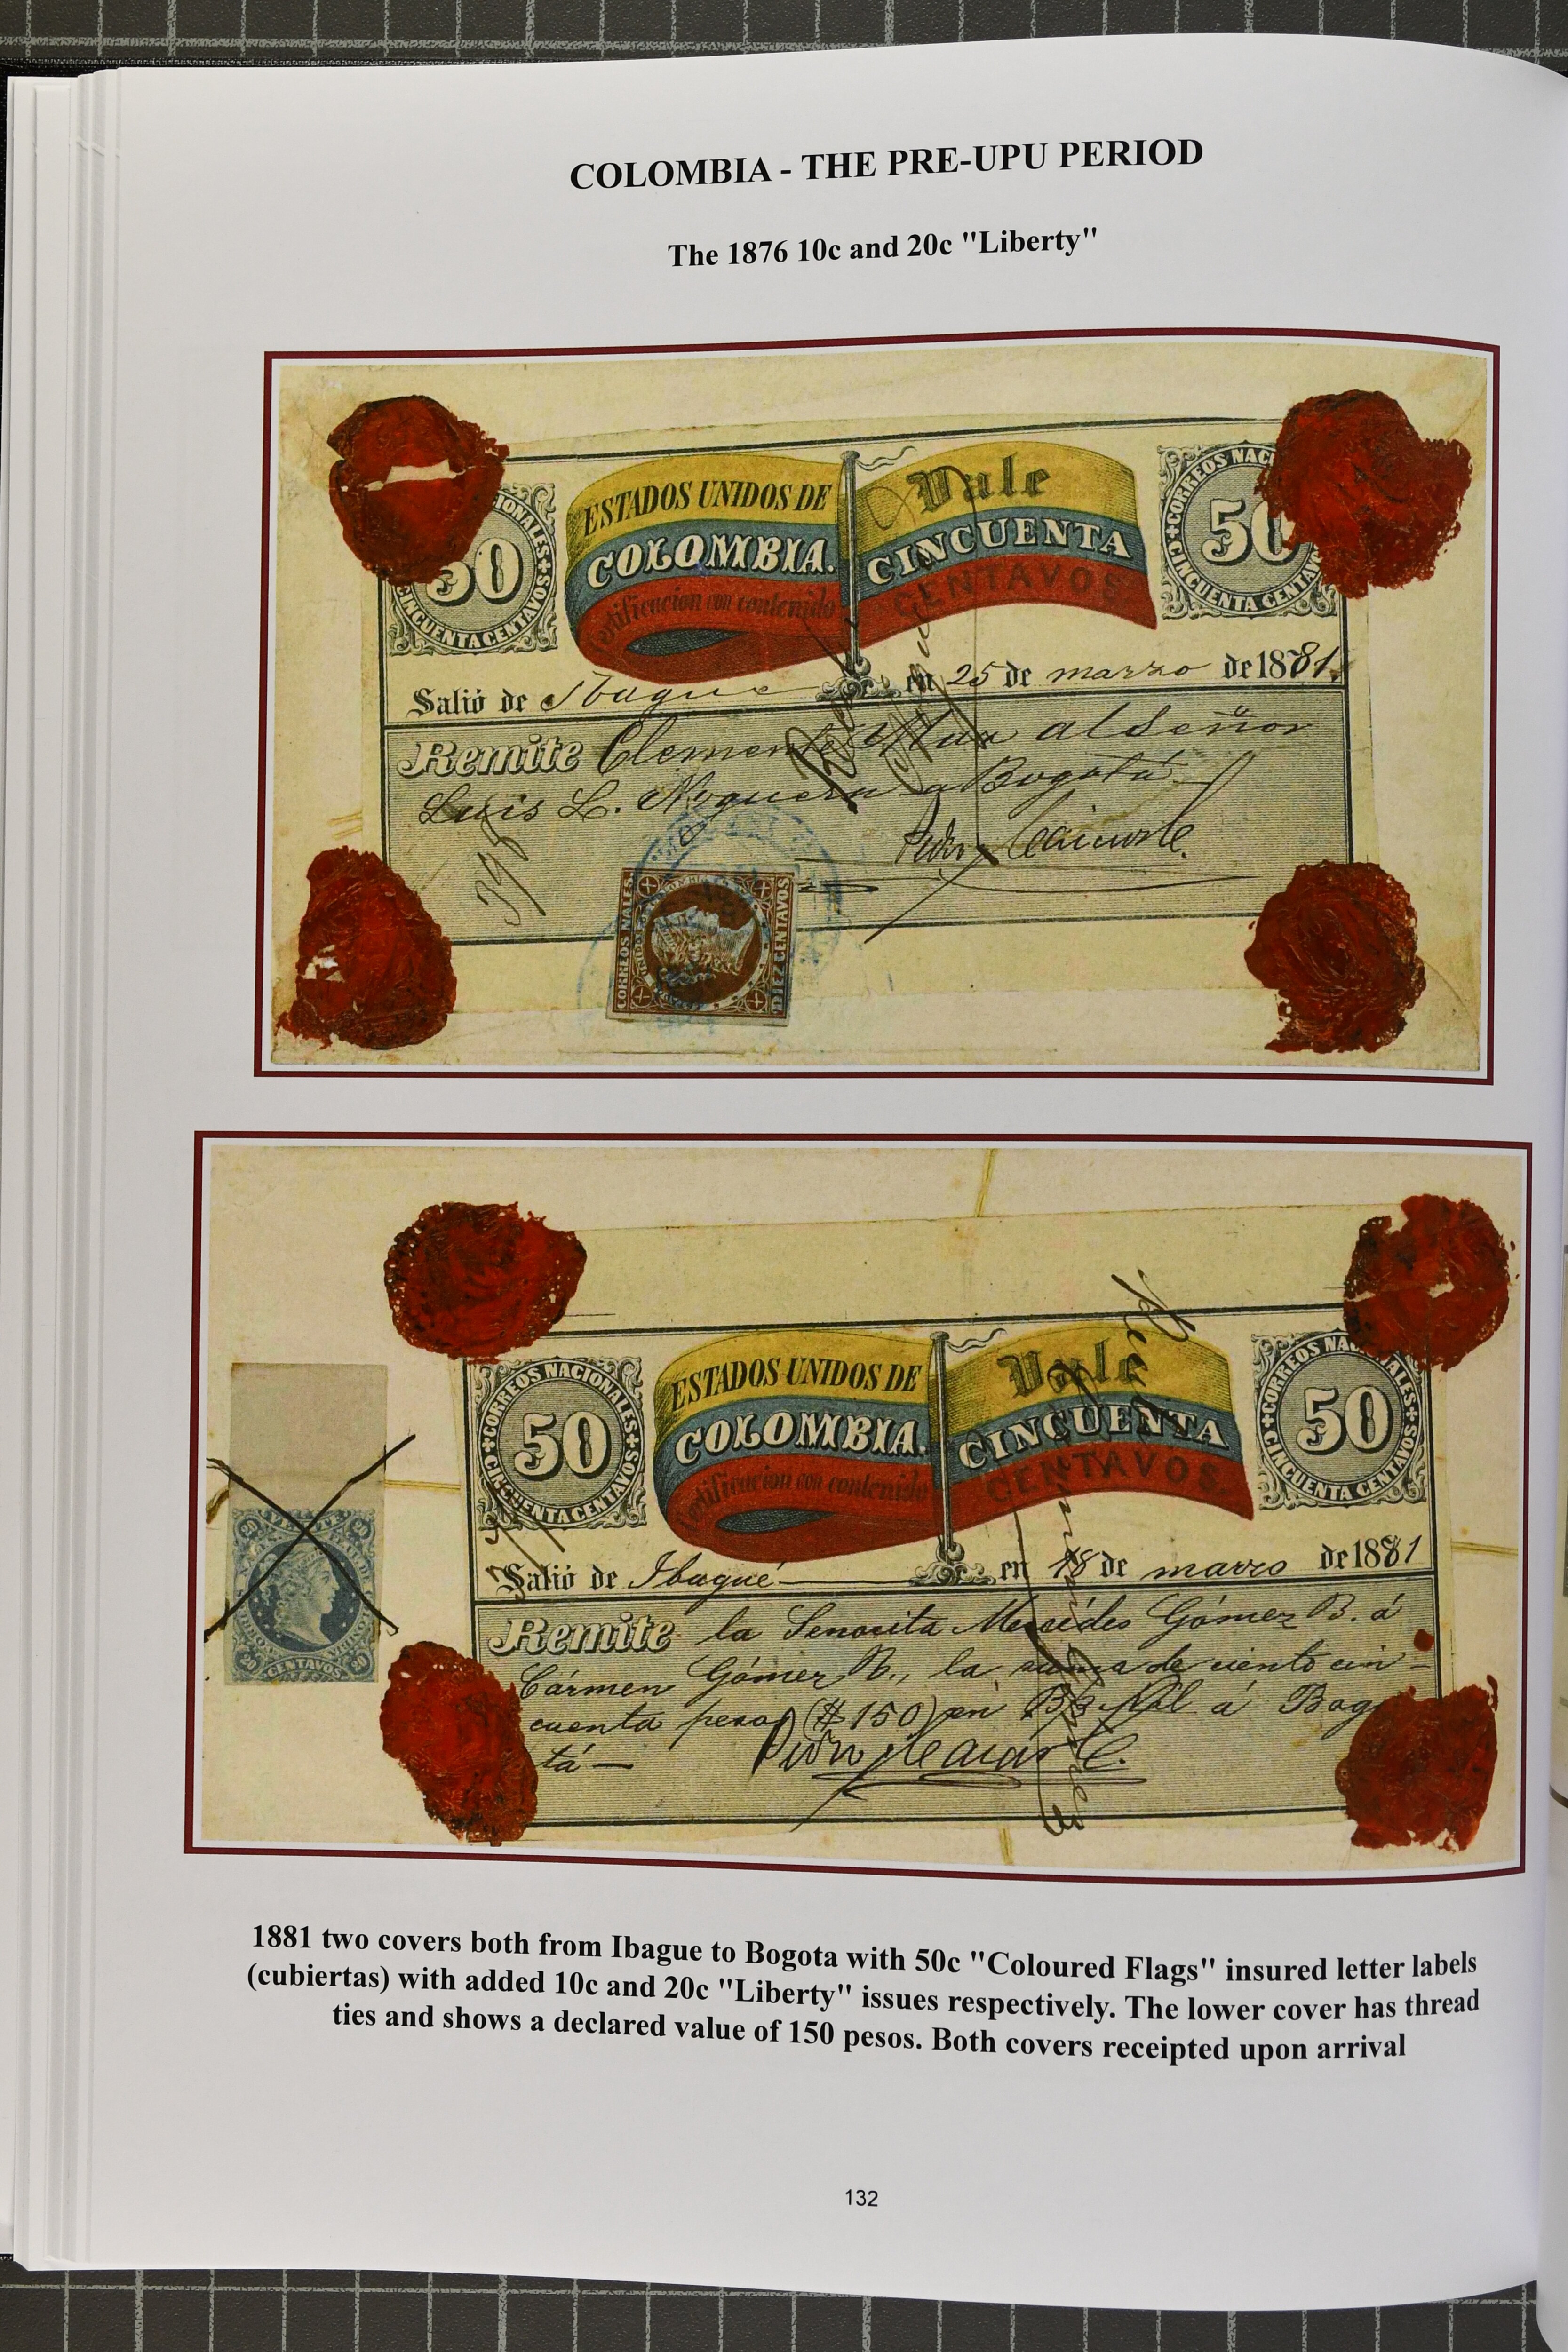 COLOMBIA - THE PRE-UPU PERIOD
The 1876 10c and 20c "Liberty"
ESTADOS UNIDOS DE
COLOMBIA.
Certificacion con contenido
Vale
CINCUENTA
CENTAVOS.
50
CINCUENTA CENTAVOS
50
CORREOS NAC
CINCUENTA CENTAV
Salió de Ibague en 25 de marzo de 1881.
Remite Clemente al Señor
Luis L. Noguera a Bogotá
Pedro
398
CORREOS NALES
DIEZ CENTAVOS
CORREOS NACIONALES
CINCUENTA CENTAVOS
50
ESTADOS UNIDOS DE
COLOMBIA.
Certificacion con contenido
Vale
CINCUENTA
CENTAVOS.
CORREOS NACIONALES
CINCUENTA CENTAVOS
50
Salió de Ibagué en 18 de marzo de 1881
Remite la Senorita Mercédes Gómez B. á
Cármen Gómez B., la suma de ciento cin-
cuenta pesos (#150) en á Bogo
tá—
Pedro
20 VEINTE 20
20 CENTAVOS 20
1881 two covers both from Ibague to Bogota with 50c "Coloured Flags" insured letter labels
(cubiertas) with added 10c and 20c "Liberty" issues respectively. The lower cover has thread
ties and shows a declared value of 150 pesos. Both covers receipted upon arrival
132